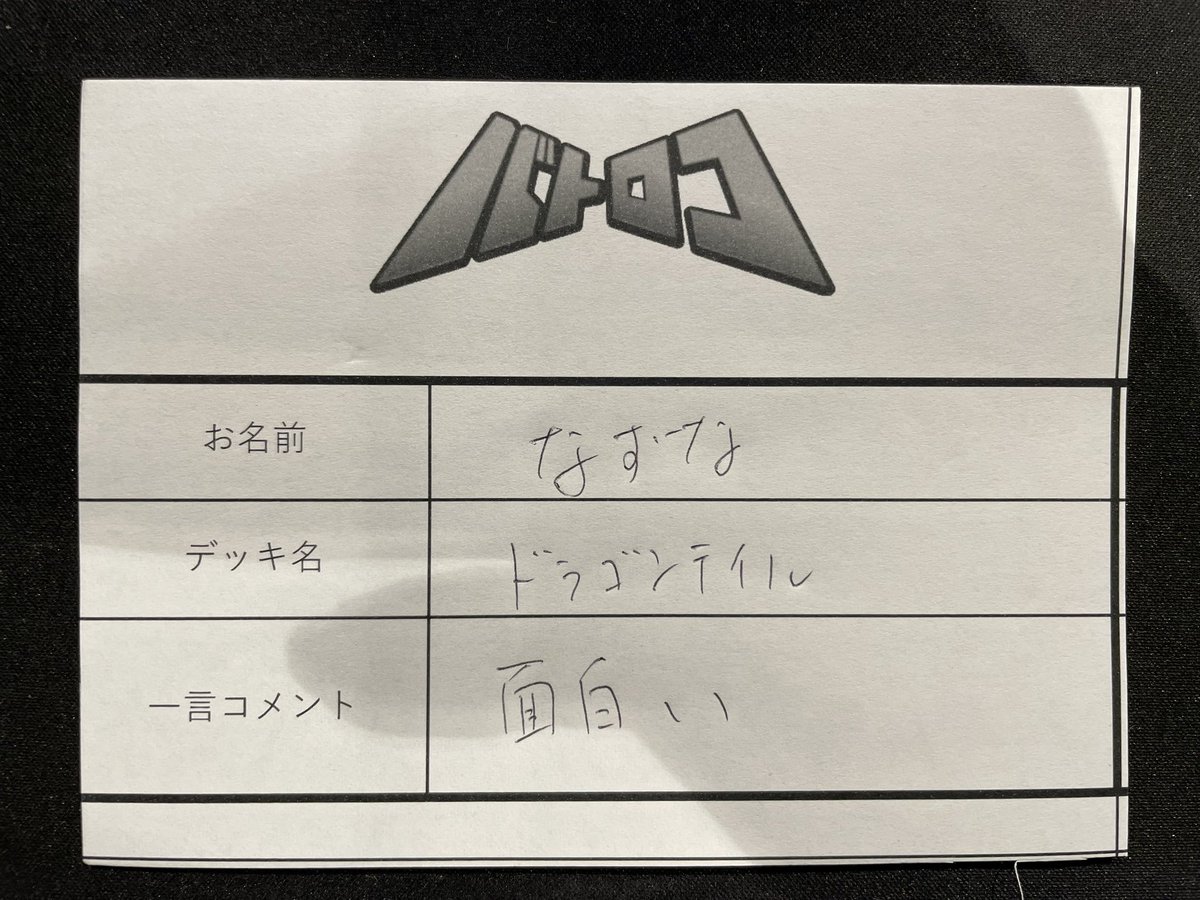 バトロコ
お名前 なずな
デッキ名 ドラゴンテイル
一言コメント 面白い